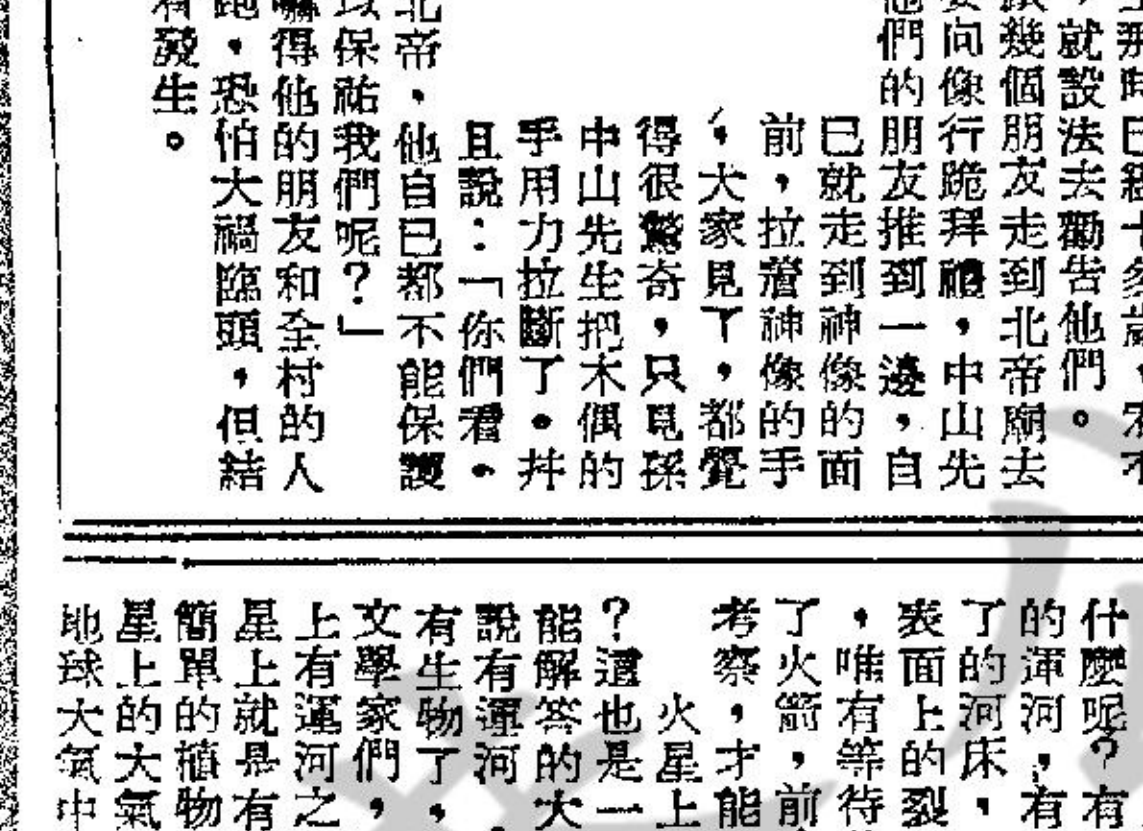 就設法去勸告他們。
幾個朋友走到北帝廟去
向像行跪拜禮，中山先
們的朋友推到一邊，自
已就走到神像的面
前，拉着神像的手
，大家見了，都覺
得很驚奇，只見孫
中山先生把木偶的
手用力拉斷了。幷
且說：「你們看。
北帝，他自已都不能保護
保祐我們呢？」
嚇得他的朋友和全村的人
跑，恐怕大禍臨頭，但結
有發生。
什麼呢？有
的運河，有
了的河床，
表面上的裂
，唯有等待
了火箭，前
考察，才能
火星上
？這也是一
能解答的大
說有運河
有生物了，
文學家們，
上有運河之
星上就是有
簡單的植物
星上的大氣
地球大氣中